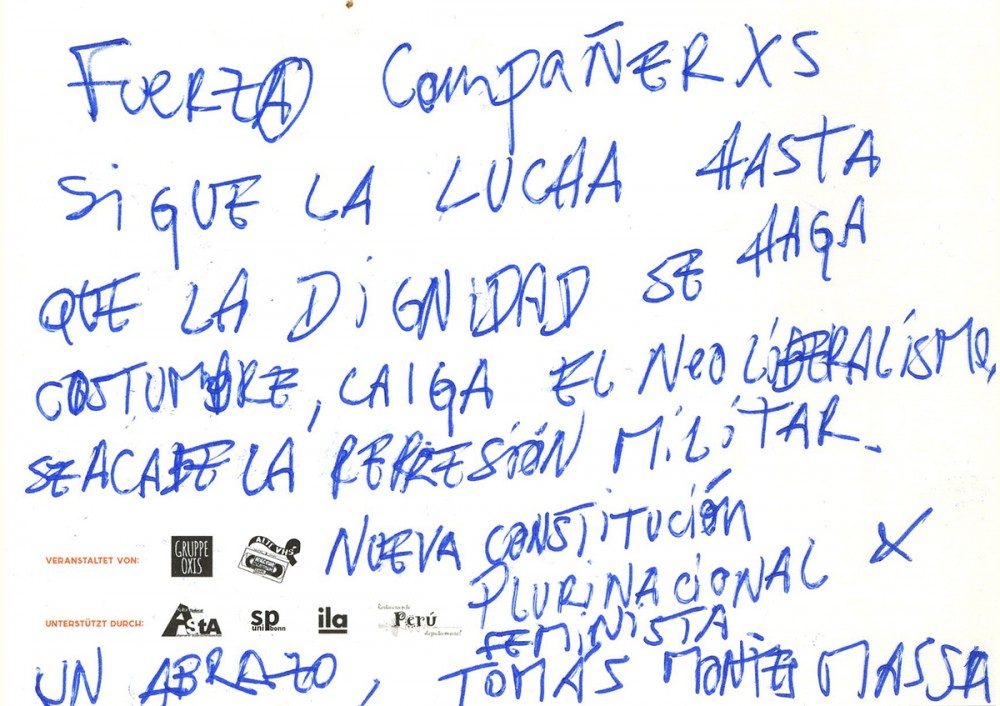 FUERZA COMPAÑERXS
SIGUE LA LUCHA HASTA
QUE LA DIGNIDAD SE HAGA
COSTUMBRE, CAIGA EL NEOLIBERALISMO,
SE ACABE LA REPRESIÓN MILITAR.
NUEVA CONSTITUCIÓN X
PLURINACIONAL
FEMINISTA.
VERANSTALTET VON: GRUPPE OXIS
UNTERSTÜTZT DURCH: AStA sp uni bonn ila Perú
UN ABRAZO, TOMÁS MONTE MASSA